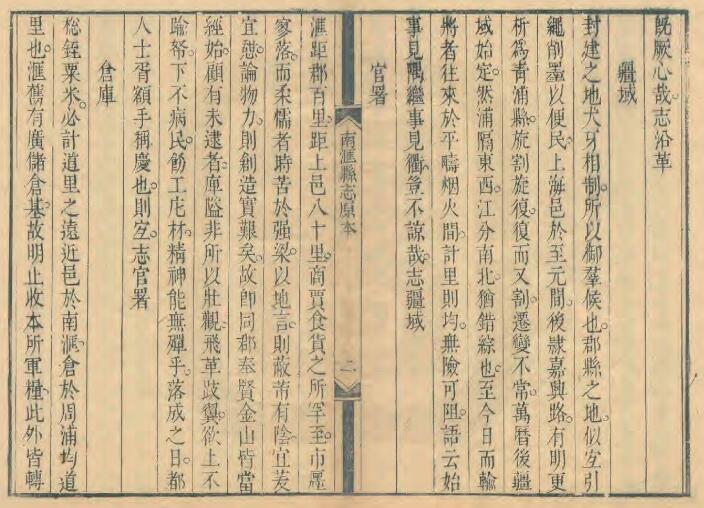 既厥心哉志沿革
疆域
封建之地犬牙相制所以御羣候也郡縣之地似宜引
繩削墨以便民上海邑於至元間後隸嘉興路有明更
析爲青浦縣旋割旋復復而又割遷變不常萬曆後疆
域始定然浦隔東西江分南北猶錯綜也至今日而輪
將者往來於平疇烟火間計里則均無險可阻語云始
事見隅繼事見衢豈不諒哉志疆域
官署
南滙縣志原本
二
滙距郡百里距上邑八十里商賈食貨之所罕至市廛
寥落而柔懦者時苦於强梁以地言則蔽芾有陰宜茇
宜憩論物力則創造實艱矣故卽同郡奉賢金山皆當
經始顧有未逮者庫隘非所以壯觀飛革跂翼欲上不
踰帑下不病民飭工庀材精神能無殫乎落成之日都
人士胥額手稱慶也則宜志官署
倉庫
總銍粟米必計道里之遠近邑於南滙倉於周浦均道
里也滙舊有廣儲倉基故明止收本所軍糧此外皆轉